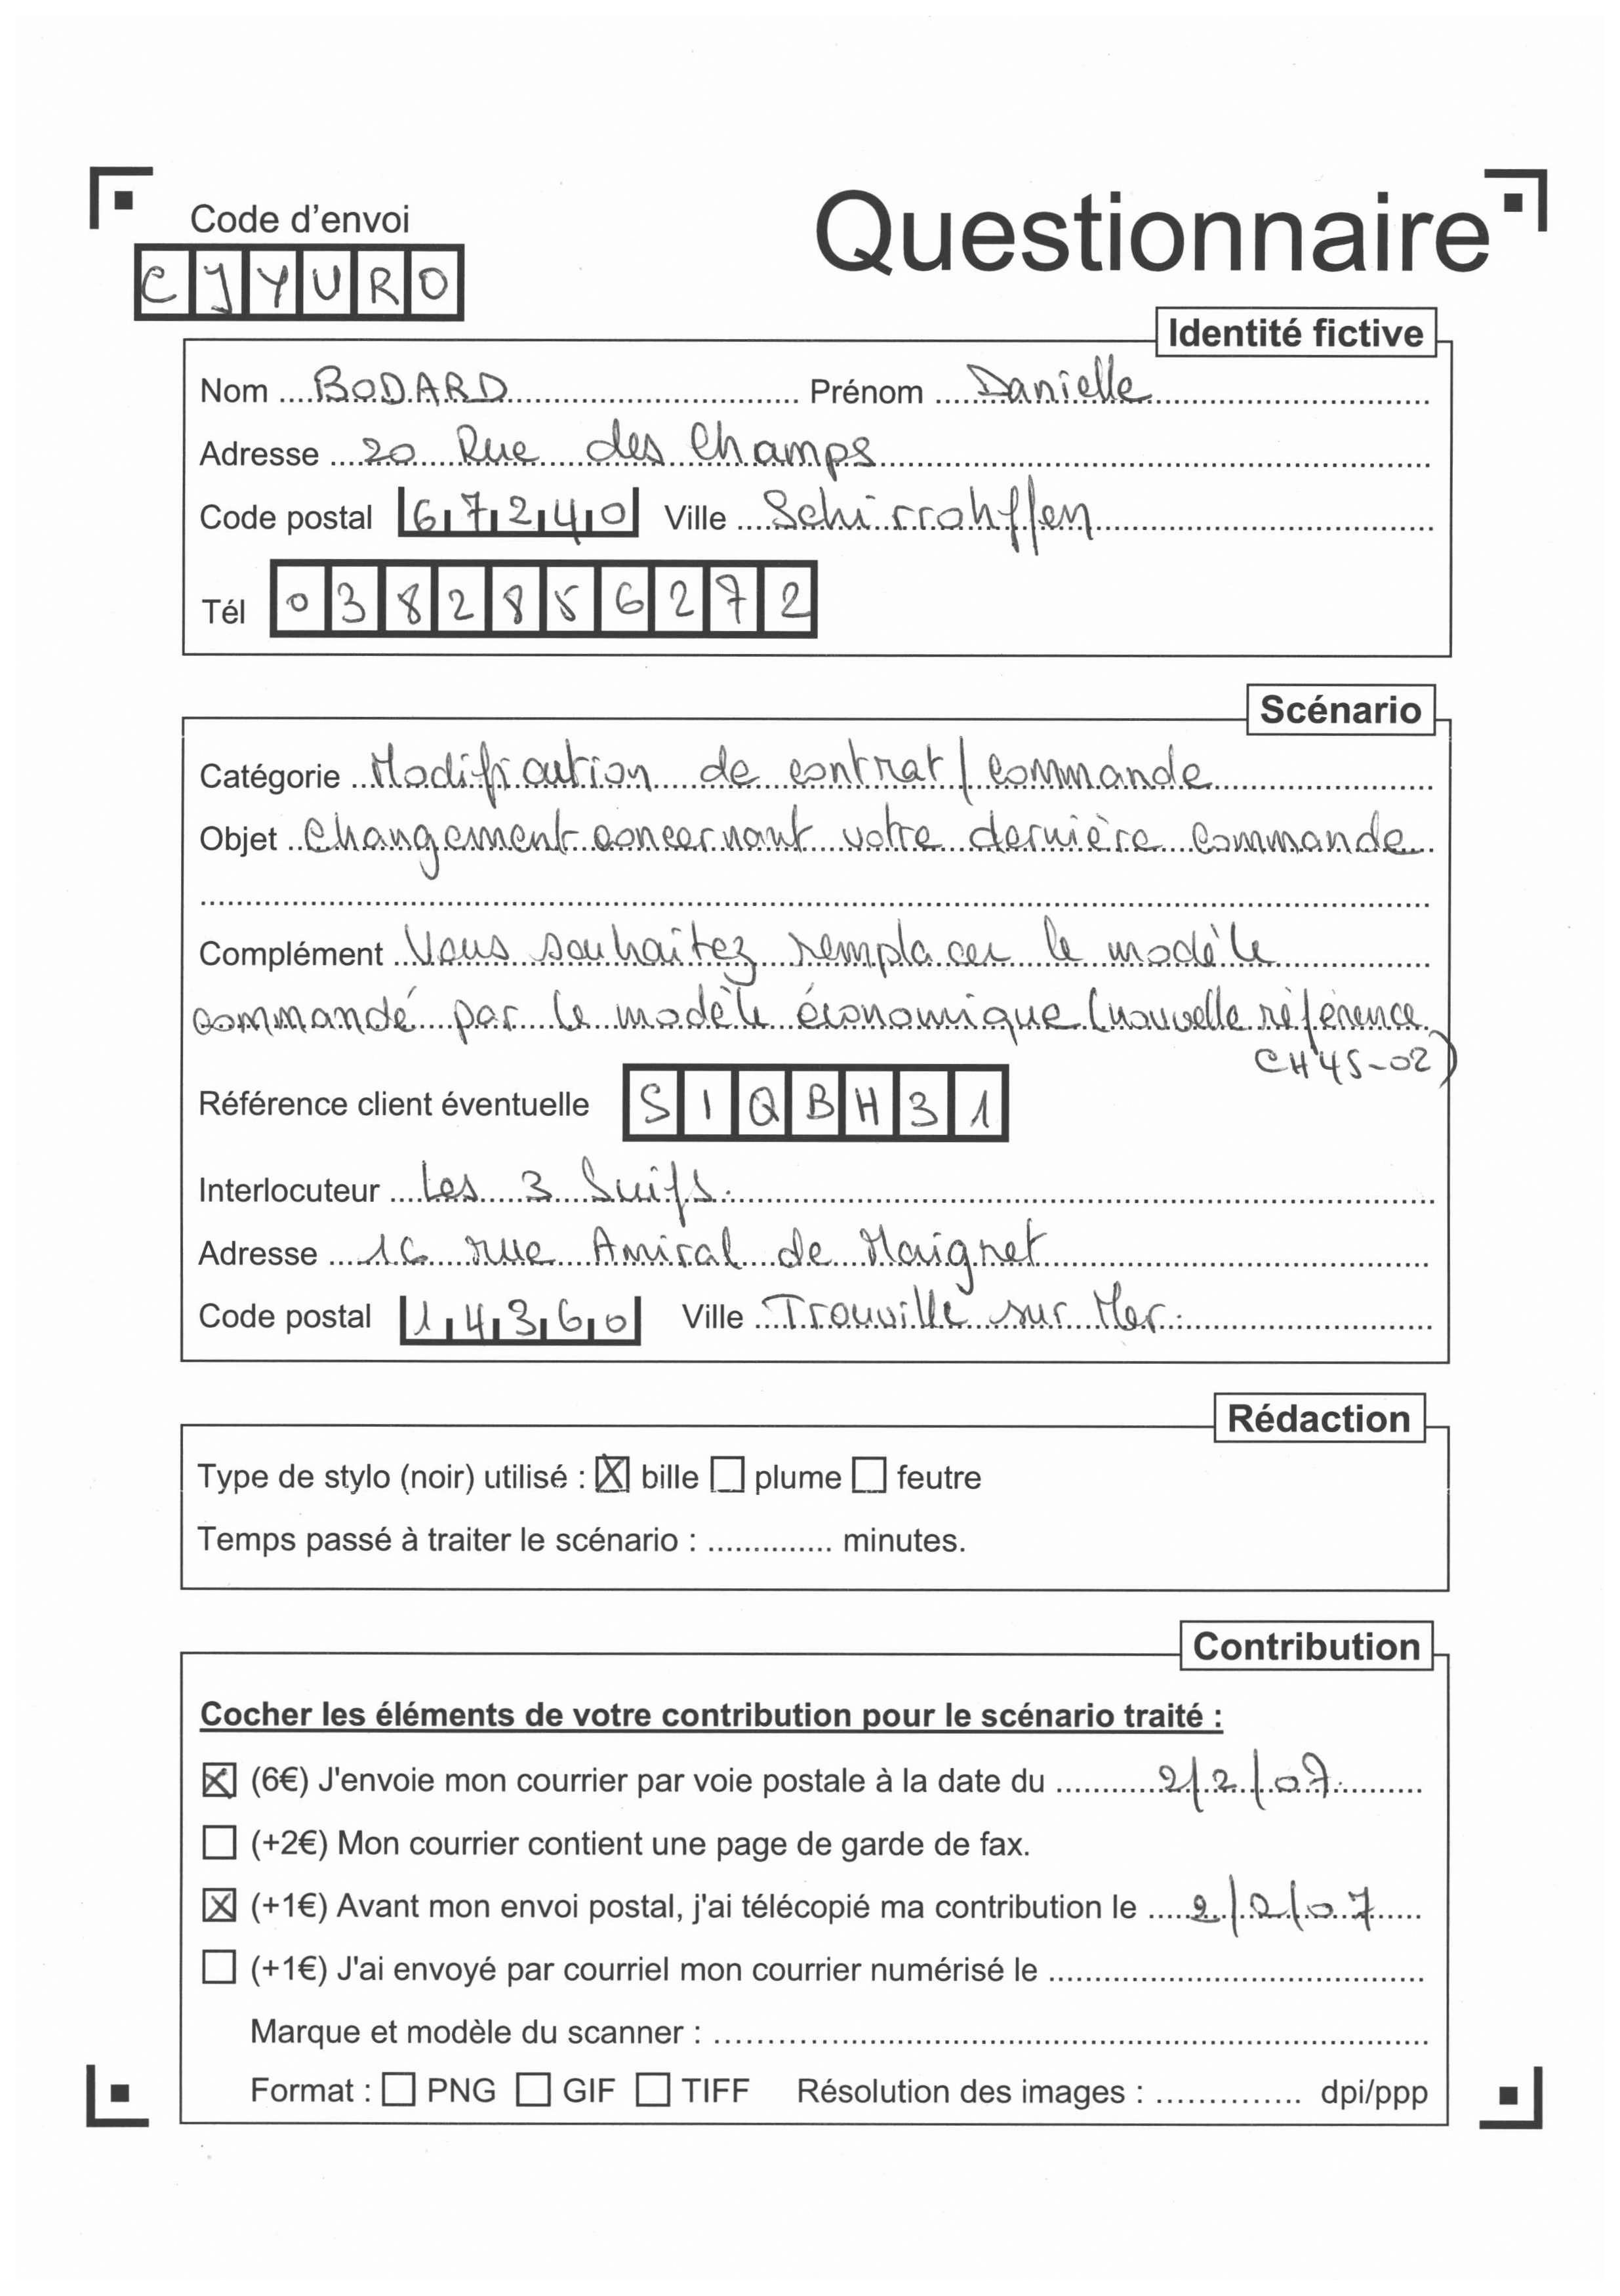 Code d'envoi
Questionnaire
CJYURO
Identité fictive
Nom BODARD Prénom Danielle
Adresse 20 Rue des Champs
Code postal 67240 Ville Schirrohffen
Tél 0382856272
Scénario
Catégorie Modification de contrat / commande
Objet Changement concernant votre dernière commande
Complément Vous souhaitez remplacer le modèle
commandé par le modèle économique (nouvelle référence
CH45-02)
Référence client éventuelle SIQBH31
Interlocuteur Les 3 Suifs.
Adresse 16 rue Amiral de Maigret
Code postal 14360 Ville Trouville sur Mer.
Rédaction
Type de stylo (noir) utilisé : ☒ bille ☐ plume ☐ feutre
Temps passé à traiter le scénario : .............. minutes.
Contribution
Cocher les éléments de votre contribution pour le scénario traité :
☒ (6€) J'envoie mon courrier par voie postale à la date du 2/2/07.
☐ (+2€) Mon courrier contient une page de garde de fax.
☒ (+1€) Avant mon envoi postal, j'ai télécopié ma contribution le 2/2/07
☐ (+1€) J'ai envoyé par courriel mon courrier numérisé le ..............
Marque et modèle du scanner : ..............
Format : ☐ PNG ☐ GIF ☐ TIFF Résolution des images : .............. dpi/ppp